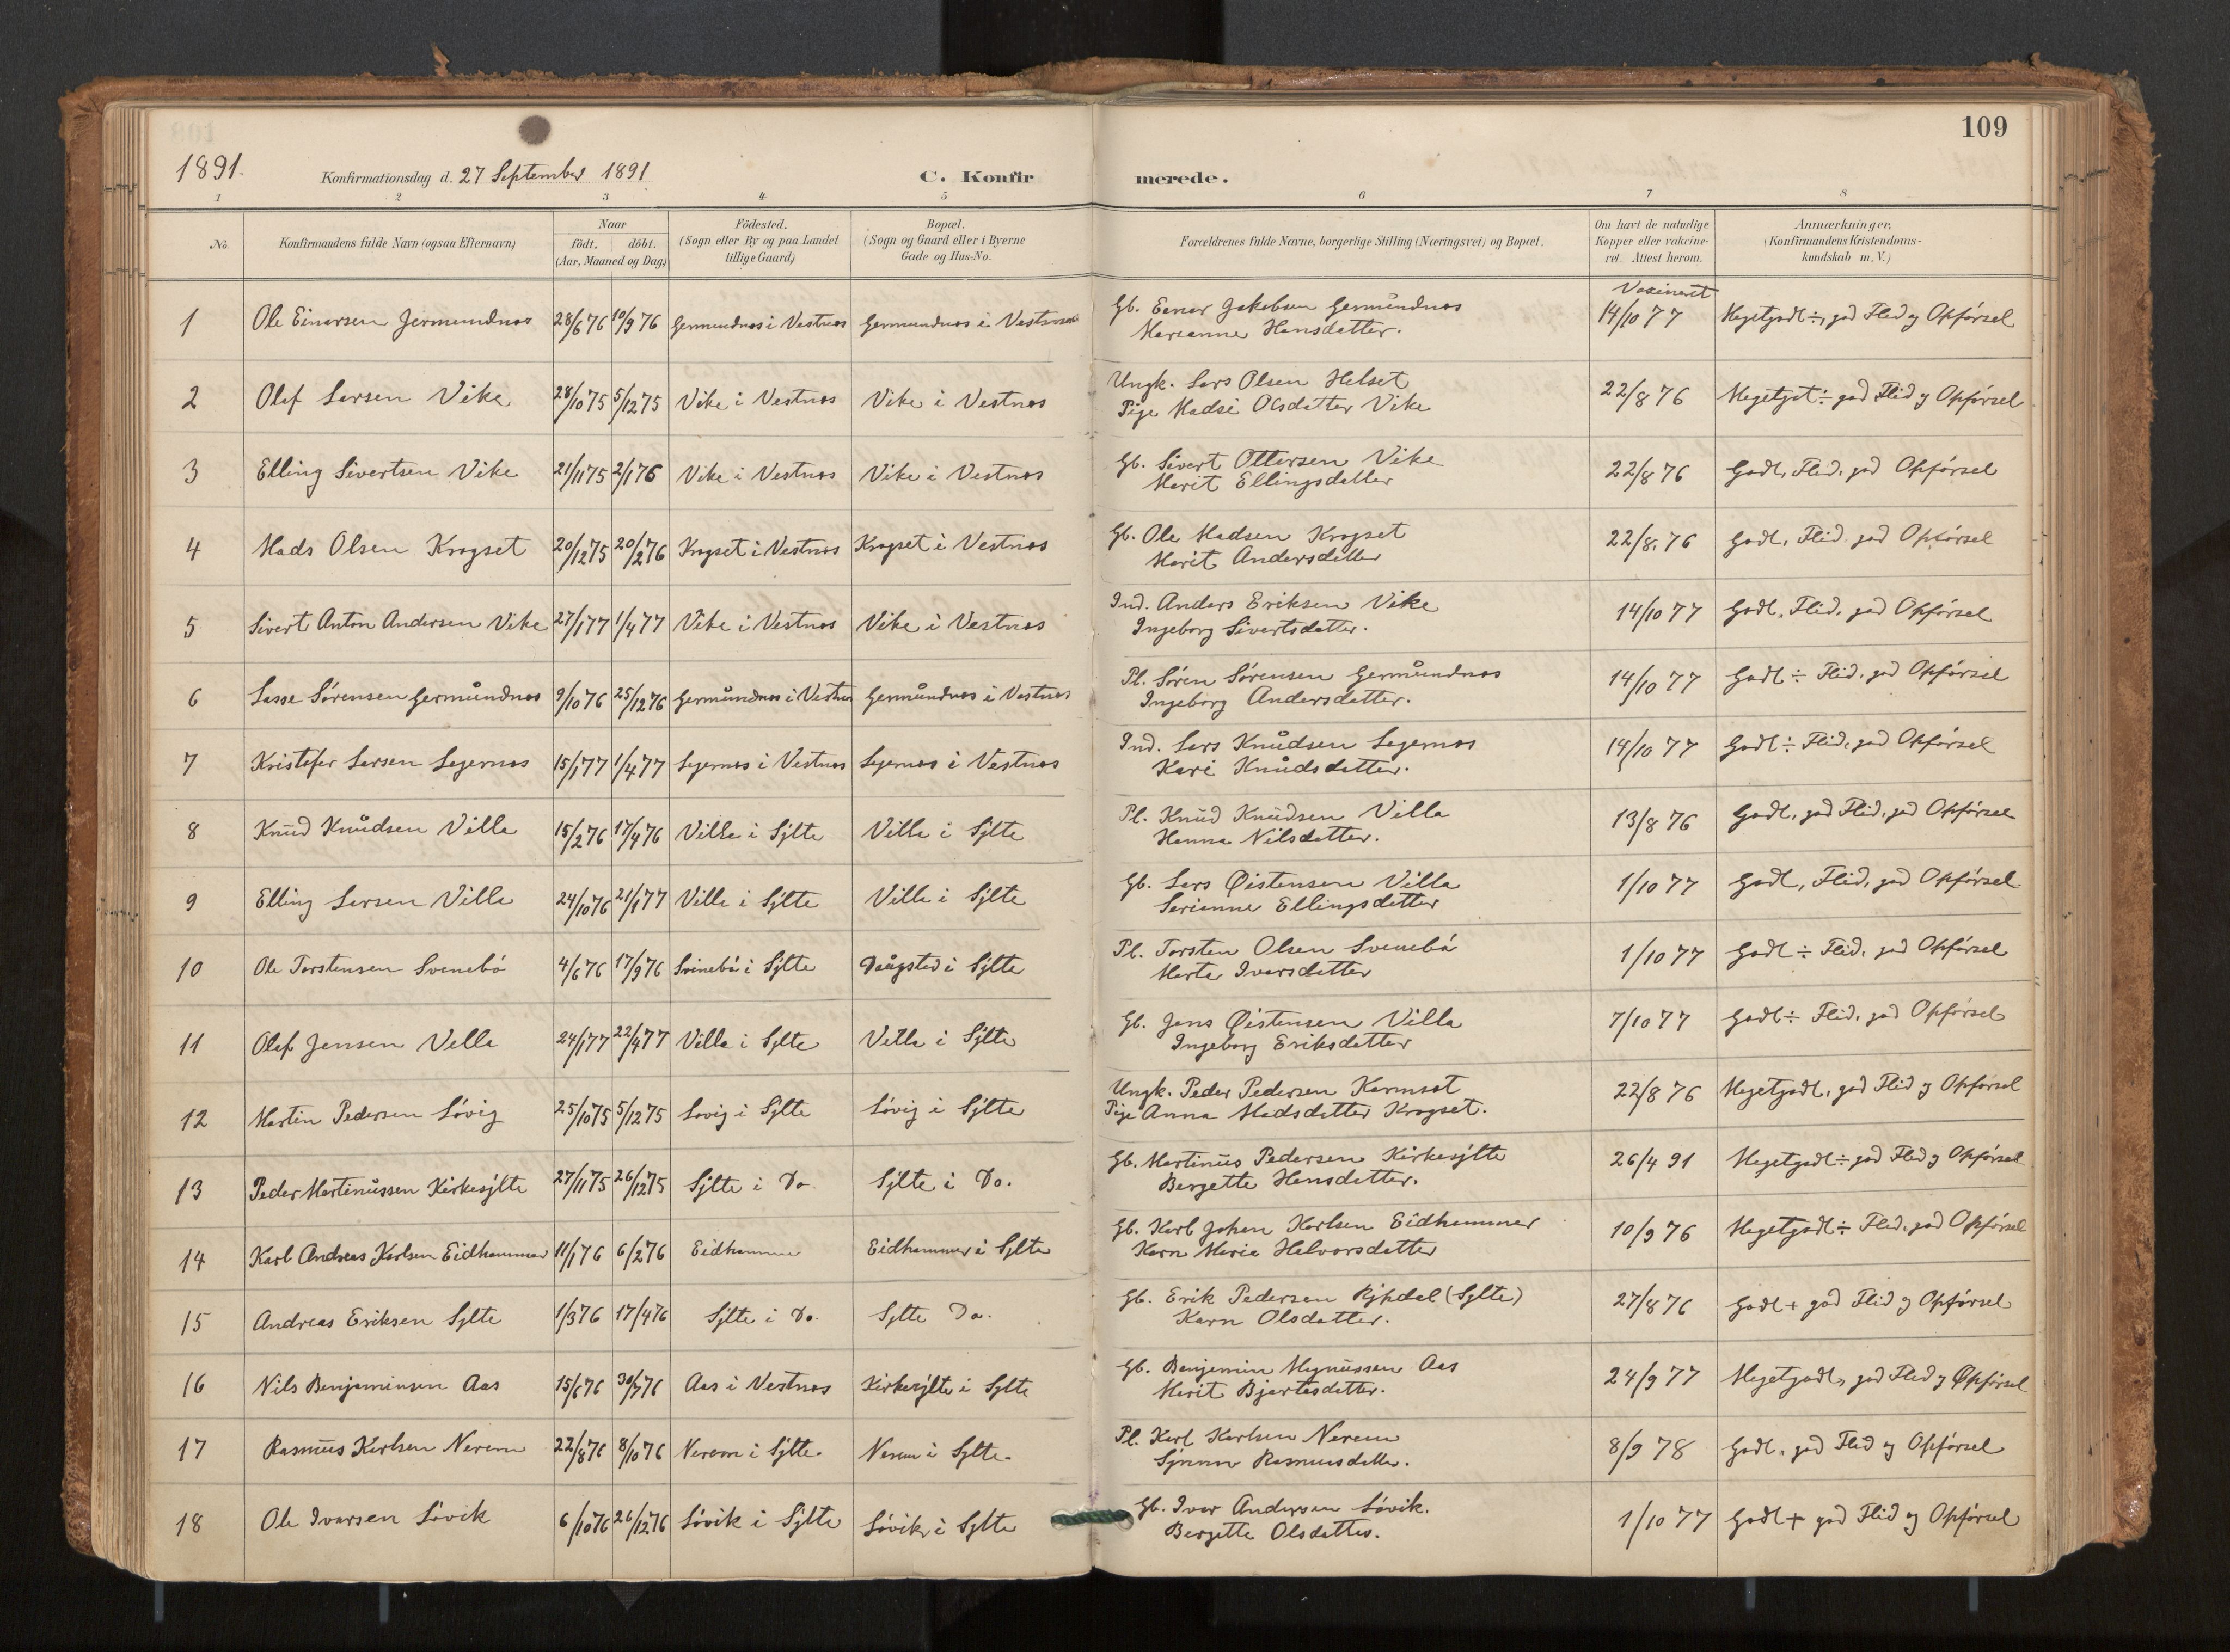 109
1891. Konfirmationsdag d. 27 September 1891 C. Konfir merede.
1 2 3 4 5 6 7 8
No. Konfirmandens fulde Navn (ogsaa Efternavn) Naar födt. döbt. (Aar, Maaned og Dag) Födested. (Sogn eller By og paa Landet tillige Gaard) Bopæl. (Sogn og Gaard eller i Byerne Gade og Hus-No. Forældrenes fulde Navne, borgerlige Stilling (Næringsvei) og Bopæl. Om havt de naturlige Kopper eller vakcineret. Attest herom. Anmærkninger. (Konfirmandens Kristendomskundskab m. V.)
Vaxineret
1 Ole Einarsen Jermundnæs 28/6 76 10/9 76 Germundnæs i Vestnæs Germundnæs i Vestnæs Gb. Eenar Jakobsen Germundnæs 14/10 77 Megetgodt ÷, god Flid og Opførsel
Marianne Hansdatter.
2 Olaf Larsen Vike 28/10 75 5/12 75 Vike i Vestnæs Vike i Vestnæs Ungk. Lars Olsen Helset 22/8 76 Megetgot ÷ god Flid og Opførsel
Pige Madsi Olsdatter Vike
3 Elling Sivertsen Vike 21/11 75 2/1 76 Vike i Vestnæs Vike i Vestnæs Gb. Sivert Ottersen Vike 22/8 76 Godt, Flid, god Opførsel
Marit Ellingsdatter
4 Mads Olsen Krogset 20/12 75 20/2 76 Krogset i Vestnæs Krogset i Vestnæs Gb. Ole Madsen Krogset 22/8 76 Godt, Flid god Opførsel
Marit Andersdatter
5 Sivert Anton Andersen Vike 27/1 77 1/4 77 Vike i Vestnæs Vike i Vestnæs Ind. Anders Eriksen Vike 14/10 77 Godt, Flid, god Opførsel
Ingeborg Sivertsdatter.
6 Lasse Sørensen Germundnæs 9/10 76 25/12 76 Germundnæs i Vestnæs Germundnæs i Vestnæs Pl. Søren Sørensen Germundnæs 14/10 77 Godt ÷ Flid, god Opførsel
Ingeborg Andersdatter.
7 Kristofer Larsen Legernæs 15/1 77 1/4 77 Legernæs i Vestnæs Legernæs i Vestnæs Ind. Lars Knudsen Legernæs 14/10 77 Godt ÷ Flid, god Opførsel
Kari Knudsdatter.
8 Knud Knudsen Villa 15/2 76 17/4 76 Villa i Sylte Villa i Sylte Pl. Knud Knudsen Villa 13/8 76 Godt, god Flid, god Opførsel
Hanna Nilsdatter.
9 Elling Larsen Villa 24/10 76 21/1 77 Villa i Sylte Villa i Sylte Gb. Lars Øistensen Villa 1/10 77 Godt, Flid, god Opførsel
Serianne Ellingsdatter
10 Ole Torstensen Svenebø 4/6 76 17/9 76 Svinebø i Sylte Daugstad i Sylte Pl. Torsten Olsen Svenebø 1/10 77 Godt ÷ Flid, god Opførsel
Marta Ivarsdatter
11 Olaf Jensen Villa 24/1 77 22/4 77 Villa i Sylte Villa i Sylte Gb. Jens Øistensen Villa 7/10 77 Godt ÷ Flid, god Opførsel
Ingeborg Eriksdatter
12 Martin Pedersen Søvig 25/10 75 5/12 75 Søvig i Sylte Søvig i Sylte Ungk. Peder Pedersen 22/8 76 Megetgodt, god Flid og Opførsel
Pige Anna Madsdatter Krogset.
13 Peder Martinussen Kirkesylte 27/11 75 26/12 75 Sylte i Do Sylte i Do. Gb. Martinus Pedersen Kirkesylte 26/4 91 Megetgodt ÷ god Flid og Opførsel
Bergette Hansdatter.
14 Karl Andreas Karlsen Eidhammer 11/1 76 6/2 76 Eidhammer Eidhammer i Sylte Gb. Karl Johan Karlsen Eidhammer 10/9 76 Megetgodt ÷ Flid, god Opførsel
Karn Maria Halvorsdatter
15 Andreas Eriksen Sylte 1/3 76 17/4 76 Sylte i Do. Sylte Do. Gb. Erik Pedersen Rypdal (Sylte) 27/8 76 Godt + god Flid og Opførsel
Karn Olsdatter.
16 Nils Benjaminsen Aas 15/6 76 30/7 76 Aas i Vestnæs Kirkesylte i Sylte Gb. Benjamin Magnussen Aas 24/9 77 Megetgodt, god Flid og Opførsel
Marit Bjartesdatter.
17 Rasmus Karlsen Nerem 22/8 76 8/10 76 Nerem i Sylte. Nerem i Sylte. Pl. Karl Karlsen Nerem 8/9 78 Godt, god Flid og Opførsel
Synnøv Rasmusdatter.
18 Ole Ivarsen Søvik 6/10 76 26/12 76 Søvik i Sylte Søvik i Sylte Gb. Ivar Andersen Søvik. 1/10 77 Godt + god Flid og Opførsel
Bergette Olsdatter.